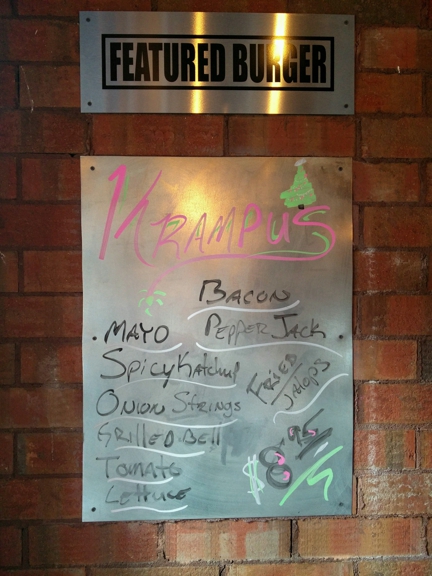 FEATURED BURGER
KRAMPUS
BACON
MAYO
PEPPER JACK
SPICY KATCHUP
FRIED
JALOPS
ONION STRINGS
GRILLED BELL
TOMATO
LETTUCE
$8.95